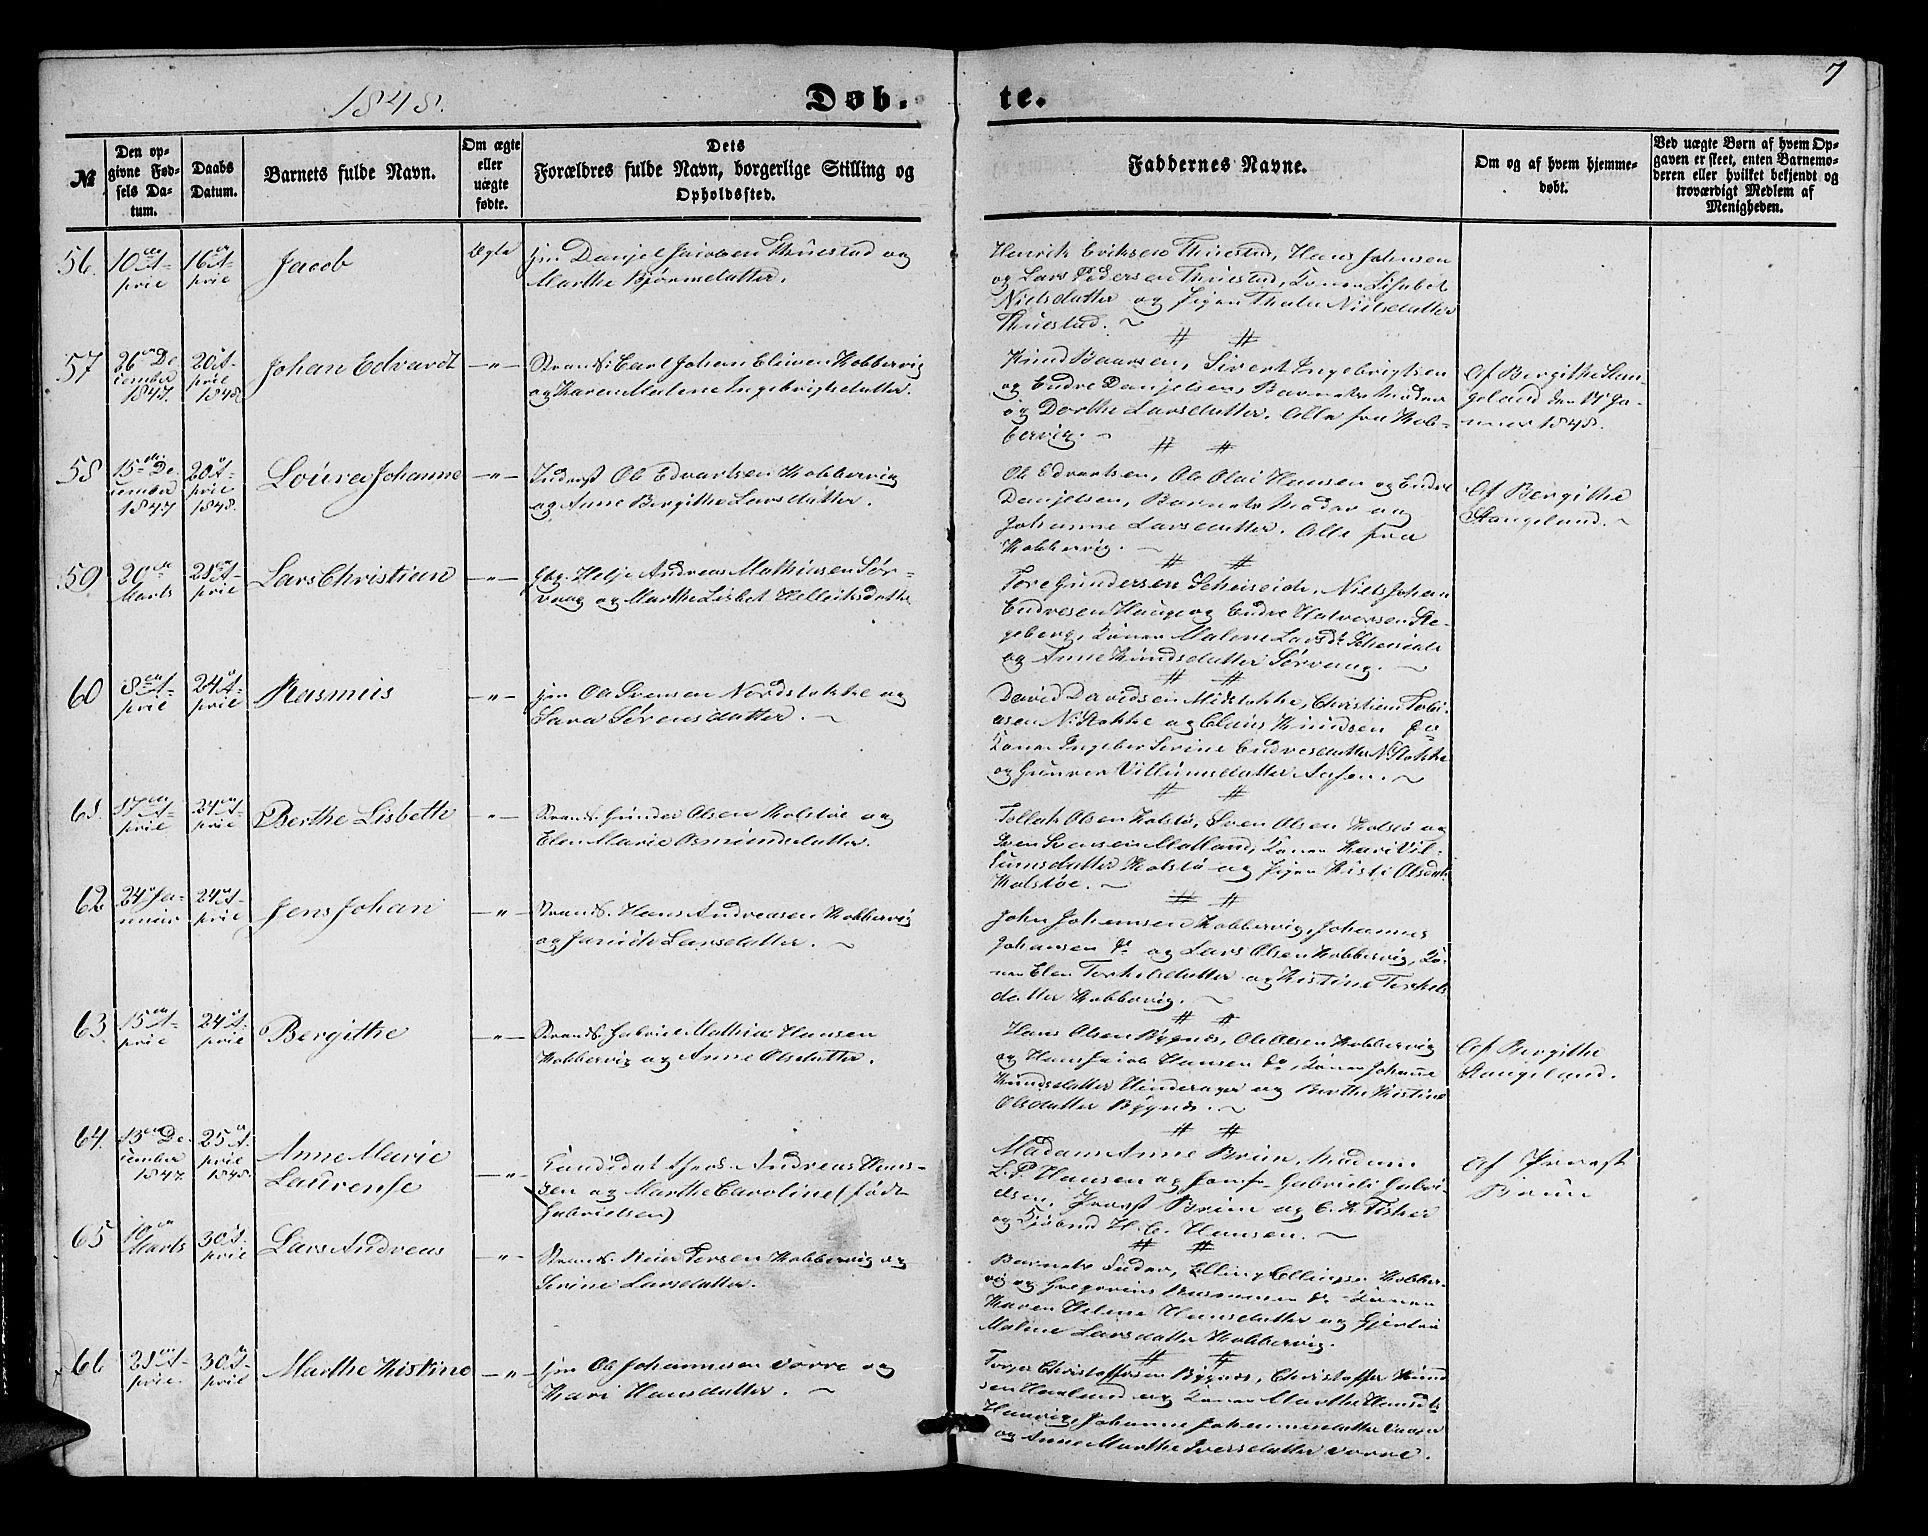 1848.
Døb-
te.
7
№
Den op-
givne Fød-
sels Da-
tum.
Daabs
Datum.
Barnets fulde Navn.
Om ægte
eller
uægte
fødte.
Dets
Forældres fulde Navn, borgerlige Stilling og
Opholdssted.
Faddernes Navne.
Om og af hvem hjemme-
døbt.
Ved uægte Børn af hvem Op-
gaven er skeet, enten Barnemo-
deren eller hvilket bekjendt og
troværdigt Medlem af
Menigheden.
56.
10de A-
pril
16 A-
pril
Jacob
Ægte
Danjel Jacobsen Thuestad og
Marthe Bjørnsdatter.
Henrik Eriksen Thuestad, Hans Johnsen
og Lars Pedersen Thuestad, Konen Lisabet
Nielsdatter og Pigen Thala Nielsdatter
Thuestad. ~
57
26 De-
cember
1847.
20 A-
pril
1848.
Johan Edvardt
-"-
Strands. Carl Johan Kobbervig
og Karen Malene Ingebrigtsdatter.
Knud Baarsen, Sivert Ingebrigtsen
og Endre Danjelsen, Barnets Moder
og Dorthe Larsdatter. Alle fra Kob-
bervig. ~
Af Bergithe Stan-
geland den 17 Ja-
nuar 1848.
58
15de De-
cember
1847
20 A-
pril
1848.
Loura Johanne
-"-
Inderst Ole Edvartsen Kobbervig
og Anne Bergithe Larsdatter.
Ole Edvartsen, Ole Olai Hansen og Endre
Danjelsen, Barnets Moder og
Johanne Larsdatter. Alle fra
Kobbervig. ~
Af Bergithe
Stangeland. ~
59.
20de
Marts
21 A-
pril
Lars Christian
-"-
Gbr. Helje Andreas Mathiasen Sør-
vaag og Marthe Lisbet
Tore Gundersen Scheiseide, Niels Johan
Endresen Hauge og Endre Halvorsen Ste-
geberg, Konen Malene Larsdt. Scheiseide
og Anne Knudsdatter Sørvaag. ~
60
8de A-
pril
24 A-
pril
Rasmus
-"-
Ole Svensen Nordstokke og
Sara Sørensdatter. ~
David Davidsen Midstokke, Christian Tobi-
asen N. Stokke og Claus Knudsen
Konen Ingeber Serine Endresdatter N. Stokke
og Gunver Villumsdatter Aasen. ~
61.
17 A-
pril
24 A-
pril
Berthe Lisbeth
-"-
Strands. Gunder Olsen Kolstøe og
Elen Marie Osmundsdatter.
Tollak Olsen Kolstø, Sven Olsen Kolstø og
Sven Svensen Matland, Konen Kari Vil-
lumsdatter Kolstø og Pigen Kisti Olsdat.
Kolstøe. ~
62
24 Ja-
nuar
24 A-
pril
Jens Johan
-"-
Strands. Hans Andreasen Kobbervig
og Janicke Larsdatter. ~
John Johansen Kobbervig, Johannes
Johansen do og Lars Olsen Kobbervig, Ko-
nen Elen Torkelsdatter og Kistine Torkels
datter Kobbervig. ~
63.
15 A-
pril
24 A-
pril
Bergithe
-"-
Strands. Gabriel Mathias Hansen
Kobbervig og Anne Olsdatter.
Hans Olsen Bygnes, Ole Olsen Kobbervig
og Hans Jacob Hansen do, Konen Johanne
Knudsdatter Hinderager og Berthe Kistine
Olsdatter Bygnes. ~
Af Bergithe
Stangeland.
64.
13 De-
cember
1847.
25 A-
pril
1848.
Anne Marie
Laurense
-"-
Candidat theol. Andreas Han-
sen og Marthe Caroline (født
Gabrielsen)
Madam Anne Bruun, Madam
L. P. Hansen og Jomfr. Gabriele Gabri-
elsen, Provst Bruun og C. K. Fisker
og Kjøbmd H. C. Hansen. ~
Af Provst
Bruun
65
10
Marts
30 A-
pril
Lars Andreas
-"-
Strands. Reier Persen Kobbervig og
Serine Larsdatter.
Barnets Fader, Elling Ellingsen Kobber-
vig og Gregorius Rasmussen do Konen
Karen Helene Hansdatter og
Malene Larsdatter Kobbervig.
66
21 A-
pril.
30 A-
pril
Marthe Kistine
-"-
Ole Johannesen Vorre og
Kari Hansdatter. ~
Torger Christoffersen Bygnes, Christoffer Knud
sen Haaland og Konen Marthe Hansdt.
Johanne Johannesdatter
og Anne Marthe Iversdatter Vorre.